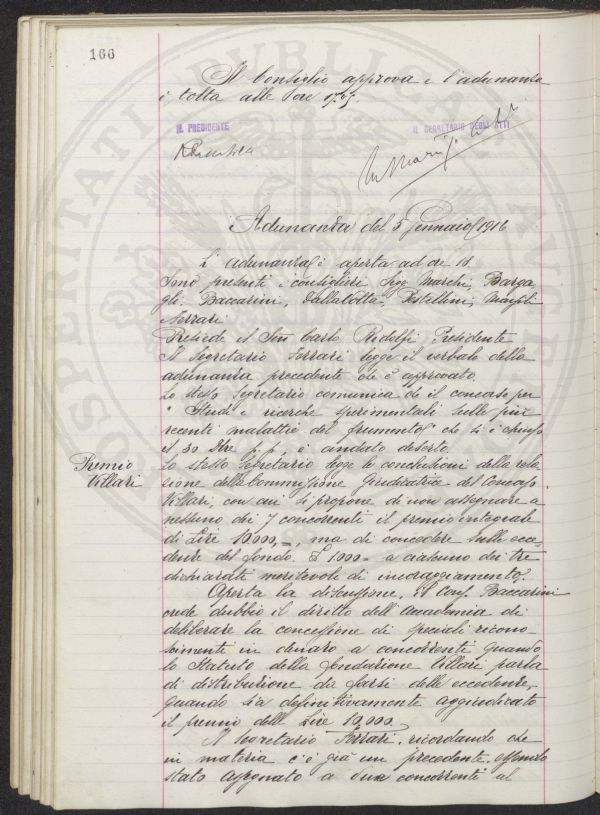 166
Il Consiglio approva e l'adunanza
è tolta alle ore 17.05.
IL PRESIDENTE
IL SEGRETARIO DEGLI ATTI
Adunanza del 5 Gennaio 1916
L'adunanza è aperta ad ore
Sono presenti i consiglieri Sigg. Marchi, Barga
gli, Baccarini, Dalla Volta, Pestellini,
e Ferrari
Presiede il Sen Carlo Ridolfi Presidente
Il Segretario Ferrari legge il verbale della
adunanza precedente che è approvato.
Lo stesso Segretario comunica che il concorso per
" Studi e ricerche sperimentali sulle più
recenti malattie del frumento" che si è chiuso
il 30 p.p. è andato deserto.
Premio
Villari
Lo stesso Segretario legge le conclusioni della rela
zione della Commissione Giudicatrice del Concorso
Villari, con cui si propone di non assegnare a
nessuno dei 7 concorrenti il premio integrale
di Lire 10000,=, ma di concedere sulle ecce
denze del fondo £ 1000= a ciascuno dei tre
dichiarati meritevoli di incoraggiamento.
Aperta la discussione, il Cons. Baccarini
crede dubbio il diritto dell'Accademia di
deliberare la concessione di speciali ricono-
scimenti in denaro a concorrenti quando
lo Statuto della fondazione Villari parla
di distribuzione da farsi delle eccedenze,
quando sia definitivamente aggiudicato
il premio delle Lire 10000
Il Segretario Ferrari, ricordando che
in materia c'è già un precedente, essendo
stato assegnato a due concorrenti al